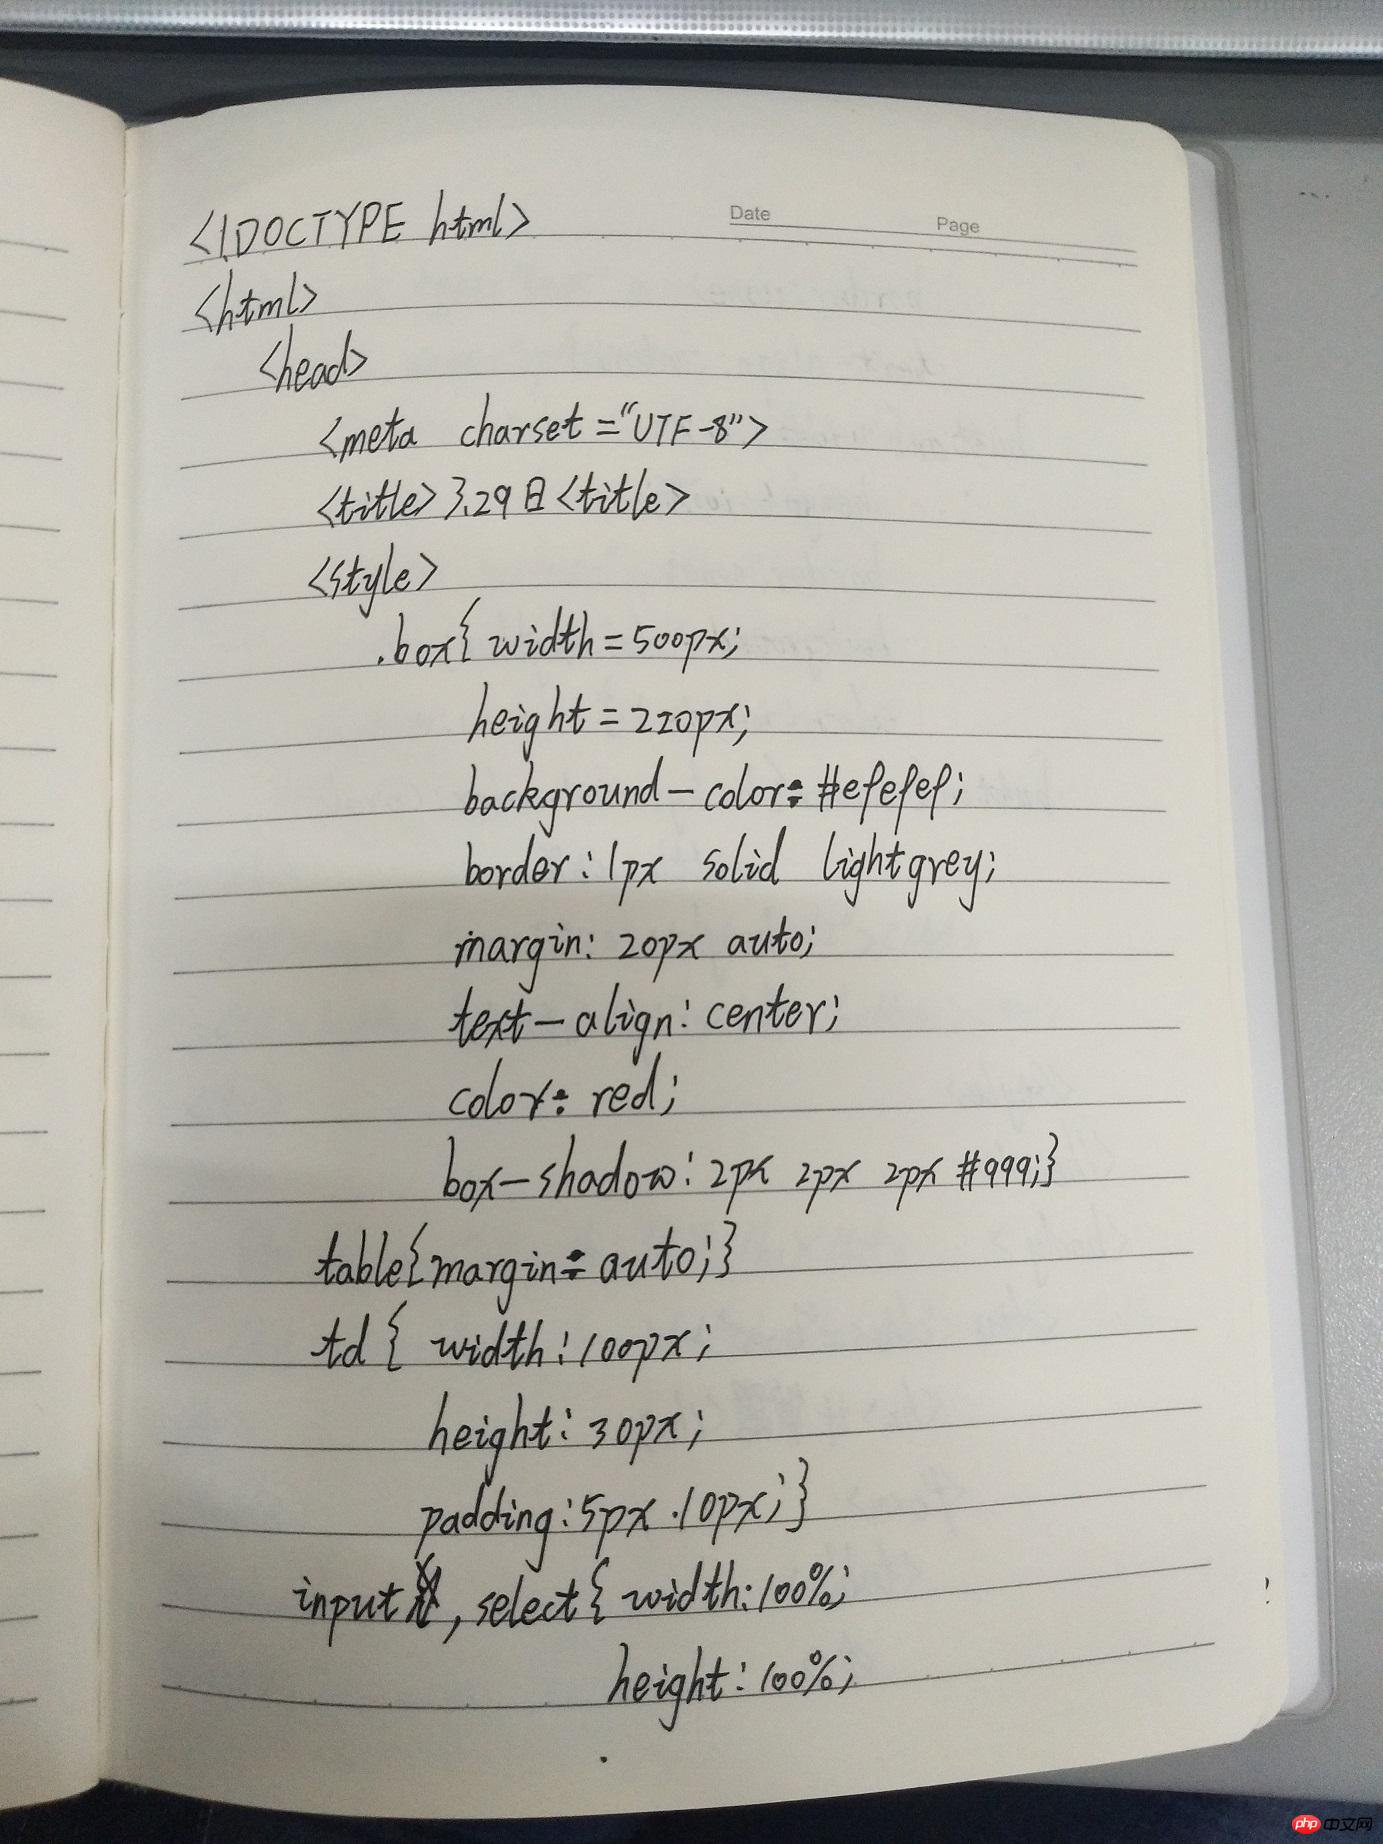 Date
Page
<!DOCTYPE html>
<html>
<head>
<meta charset="UTF-8">
<title>3.29日<title>
<style>
.box{ width=500px;
height=220px;
background-color: #efefef;
border: 1px solid lightgrey;
margin: 20px auto;
text-align: center;
color: red;
box-shadow: 2px 2px 2px #999;}
table{margin: auto;}
td { width: 100px;
height: 30px;
padding: 5px 10px;}
input , select{ width: 100%;
height: 100%;
php 中文网